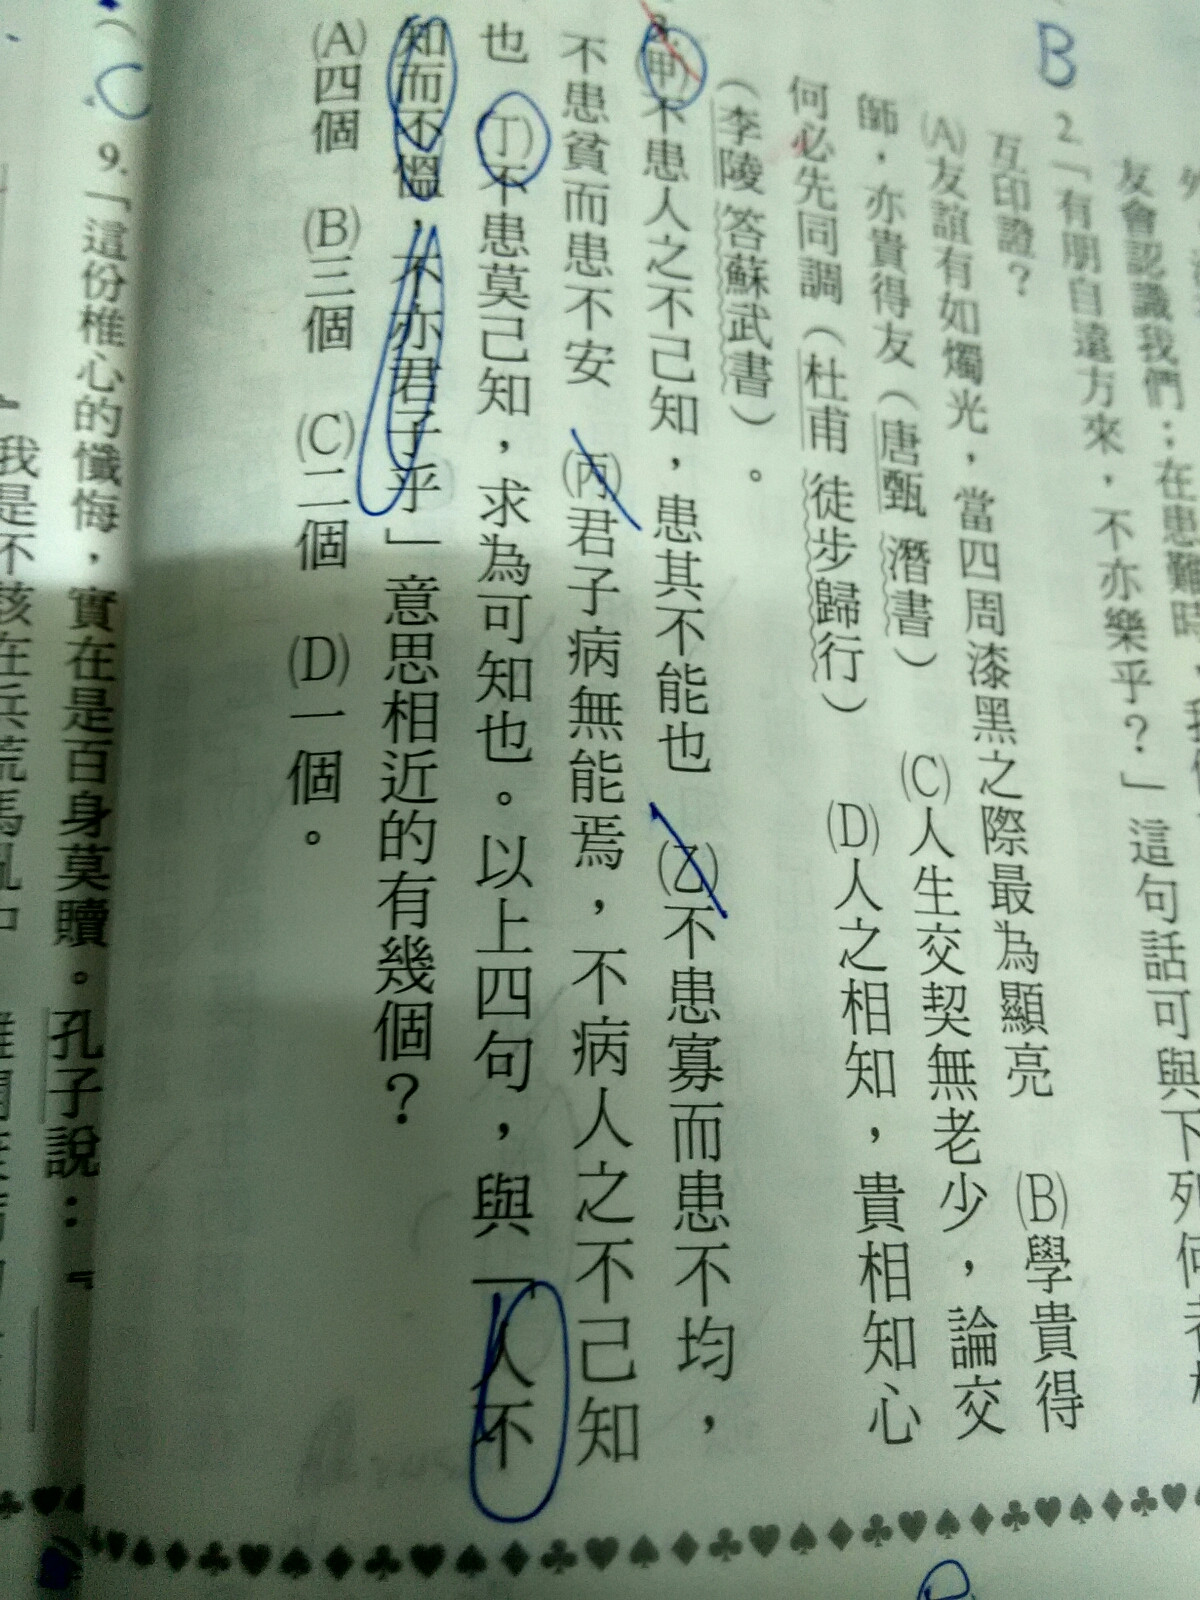 B
2.「有朋自遠方來，不亦樂乎？」這句話可與下列何者
友會認識我們；在患難時，我
互印證？
(A)友誼有如燭光，當四周漆黑之際最為顯亮　(B)學貴得
師，亦貴得友（唐甄 潛書）　(C)人生交契無老少，論交
何必先同調（杜甫 徒步歸行）　(D)人之相知，貴相知心
（李陵 答蘇武書）。
3.(甲)不患人之不己知，患其不能也　(乙)不患寡而患不均，
不患貧而患不安　(丙)君子病無能焉，不病人之不己知
也　(丁)不患莫己知，求為可知也。以上四句，與「人不
知而不慍，不亦君子乎」意思相近的有幾個？
(A)四個　(B)三個　(C)二個　(D)一個。
C
9.「這份椎心的懺悔，實在是百身莫贖。孔子說：『
我是不該在兵荒馬亂中